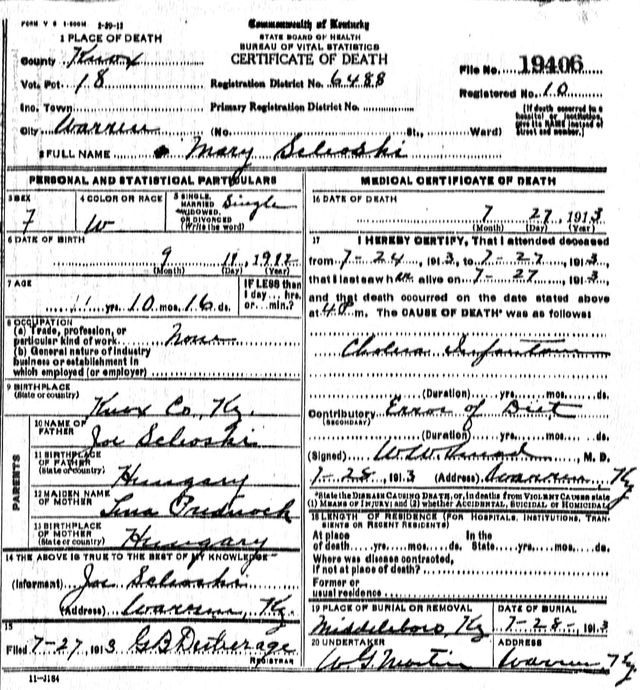 FORM V S 1-500M 2-20-13
Commonwealth of Kentucky
STATE BOARD OF HEALTH
BUREAU OF VITAL STATISTICS
CERTIFICATE OF DEATH
1 PLACE OF DEATH
County Knox
Vot. Pct 18
Inc. Town
City Warren (No. St., Ward)
Registration District No. 6488
Primary Registration District No.
File No. 19406
Registered No. 10
(If death occurred in a hospital or institution, give its NAME instead of street and number.)
2 FULL NAME Mary Selroski
PERSONAL AND STATISTICAL PARTICULARS
3 SEX
F
4 COLOR OR RACE
W
5 SINGLE, MARRIED WIDOWED, OR DIVORCED (Write the word)
Single
6 DATE OF BIRTH
9 11, 1912
(Month) (Day) (Year)
7 AGE
yrs. 10 mos. 16 ds.
IF LESS than 1 day... hrs. or... min.?
8 OCCUPATION
(a) Trade, profession, or particular kind of work None
(b) General nature of industry business or establishment in which employed (or employer)
9 BIRTHPLACE
(State or country)
Knox Co., Ky.
PARENTS
10 NAME OF FATHER
Joe Selroski
11 BIRTHPLACE OF FATHER
(State or country)
Hungary
12 MAIDEN NAME OF MOTHER
Lena
13 BIRTHPLACE OF MOTHER
(State or country)
Hungary
14 THE ABOVE IS TRUE TO THE BEST OF MY KNOWLEDGE
(Informant) Joe Selroski
(Address) Warren, Ky.
15
Filed 7-27, 1913 G B
REGISTRAR
11-3184
MEDICAL CERTIFICATE OF DEATH
16 DATE OF DEATH
7 27, 1913
(Month) (Day) (Year)
17 I HEREBY CERTIFY, That I attended deceased
from 7-24, 1913, to 7-27, 1913
that I last saw her alive on 7-27, 1913
and that death occurred on the date stated above
at 4 P m. The CAUSE OF DEATH* was as follows:
Cholera Infantum
(Duration) yrs. mos. ds.
Contributory Error of Diet
(SECONDARY)
(Duration) yrs. mos. ds.
(Signed) M. D.
7-28, 1913 (Address) Warren, Ky
*State the DISEASE CAUSING DEATH, or, in deaths from VIOLENT CAUSES state (1) MEANS OF INJURY; and (2) whether ACCIDENTAL, SUICIDAL OF HOMICIDAL
18 LENGTH OF RESIDENCE (FOR HOSPITALS, INSTITUTIONS, TRANSIENTS OR RECENT RESIDENTS)
At place of death yrs. mos. ds. In the State yrs. mos. ds.
Where was disease contracted, if not at place of death?
Former or usual residence
19 PLACE OF BURIAL OR REMOVAL
Middlesboro, Ky
DATE OF BURIAL
7-28-, 1913
20 UNDERTAKER
W G Martin
ADDRESS
Warren Ky.